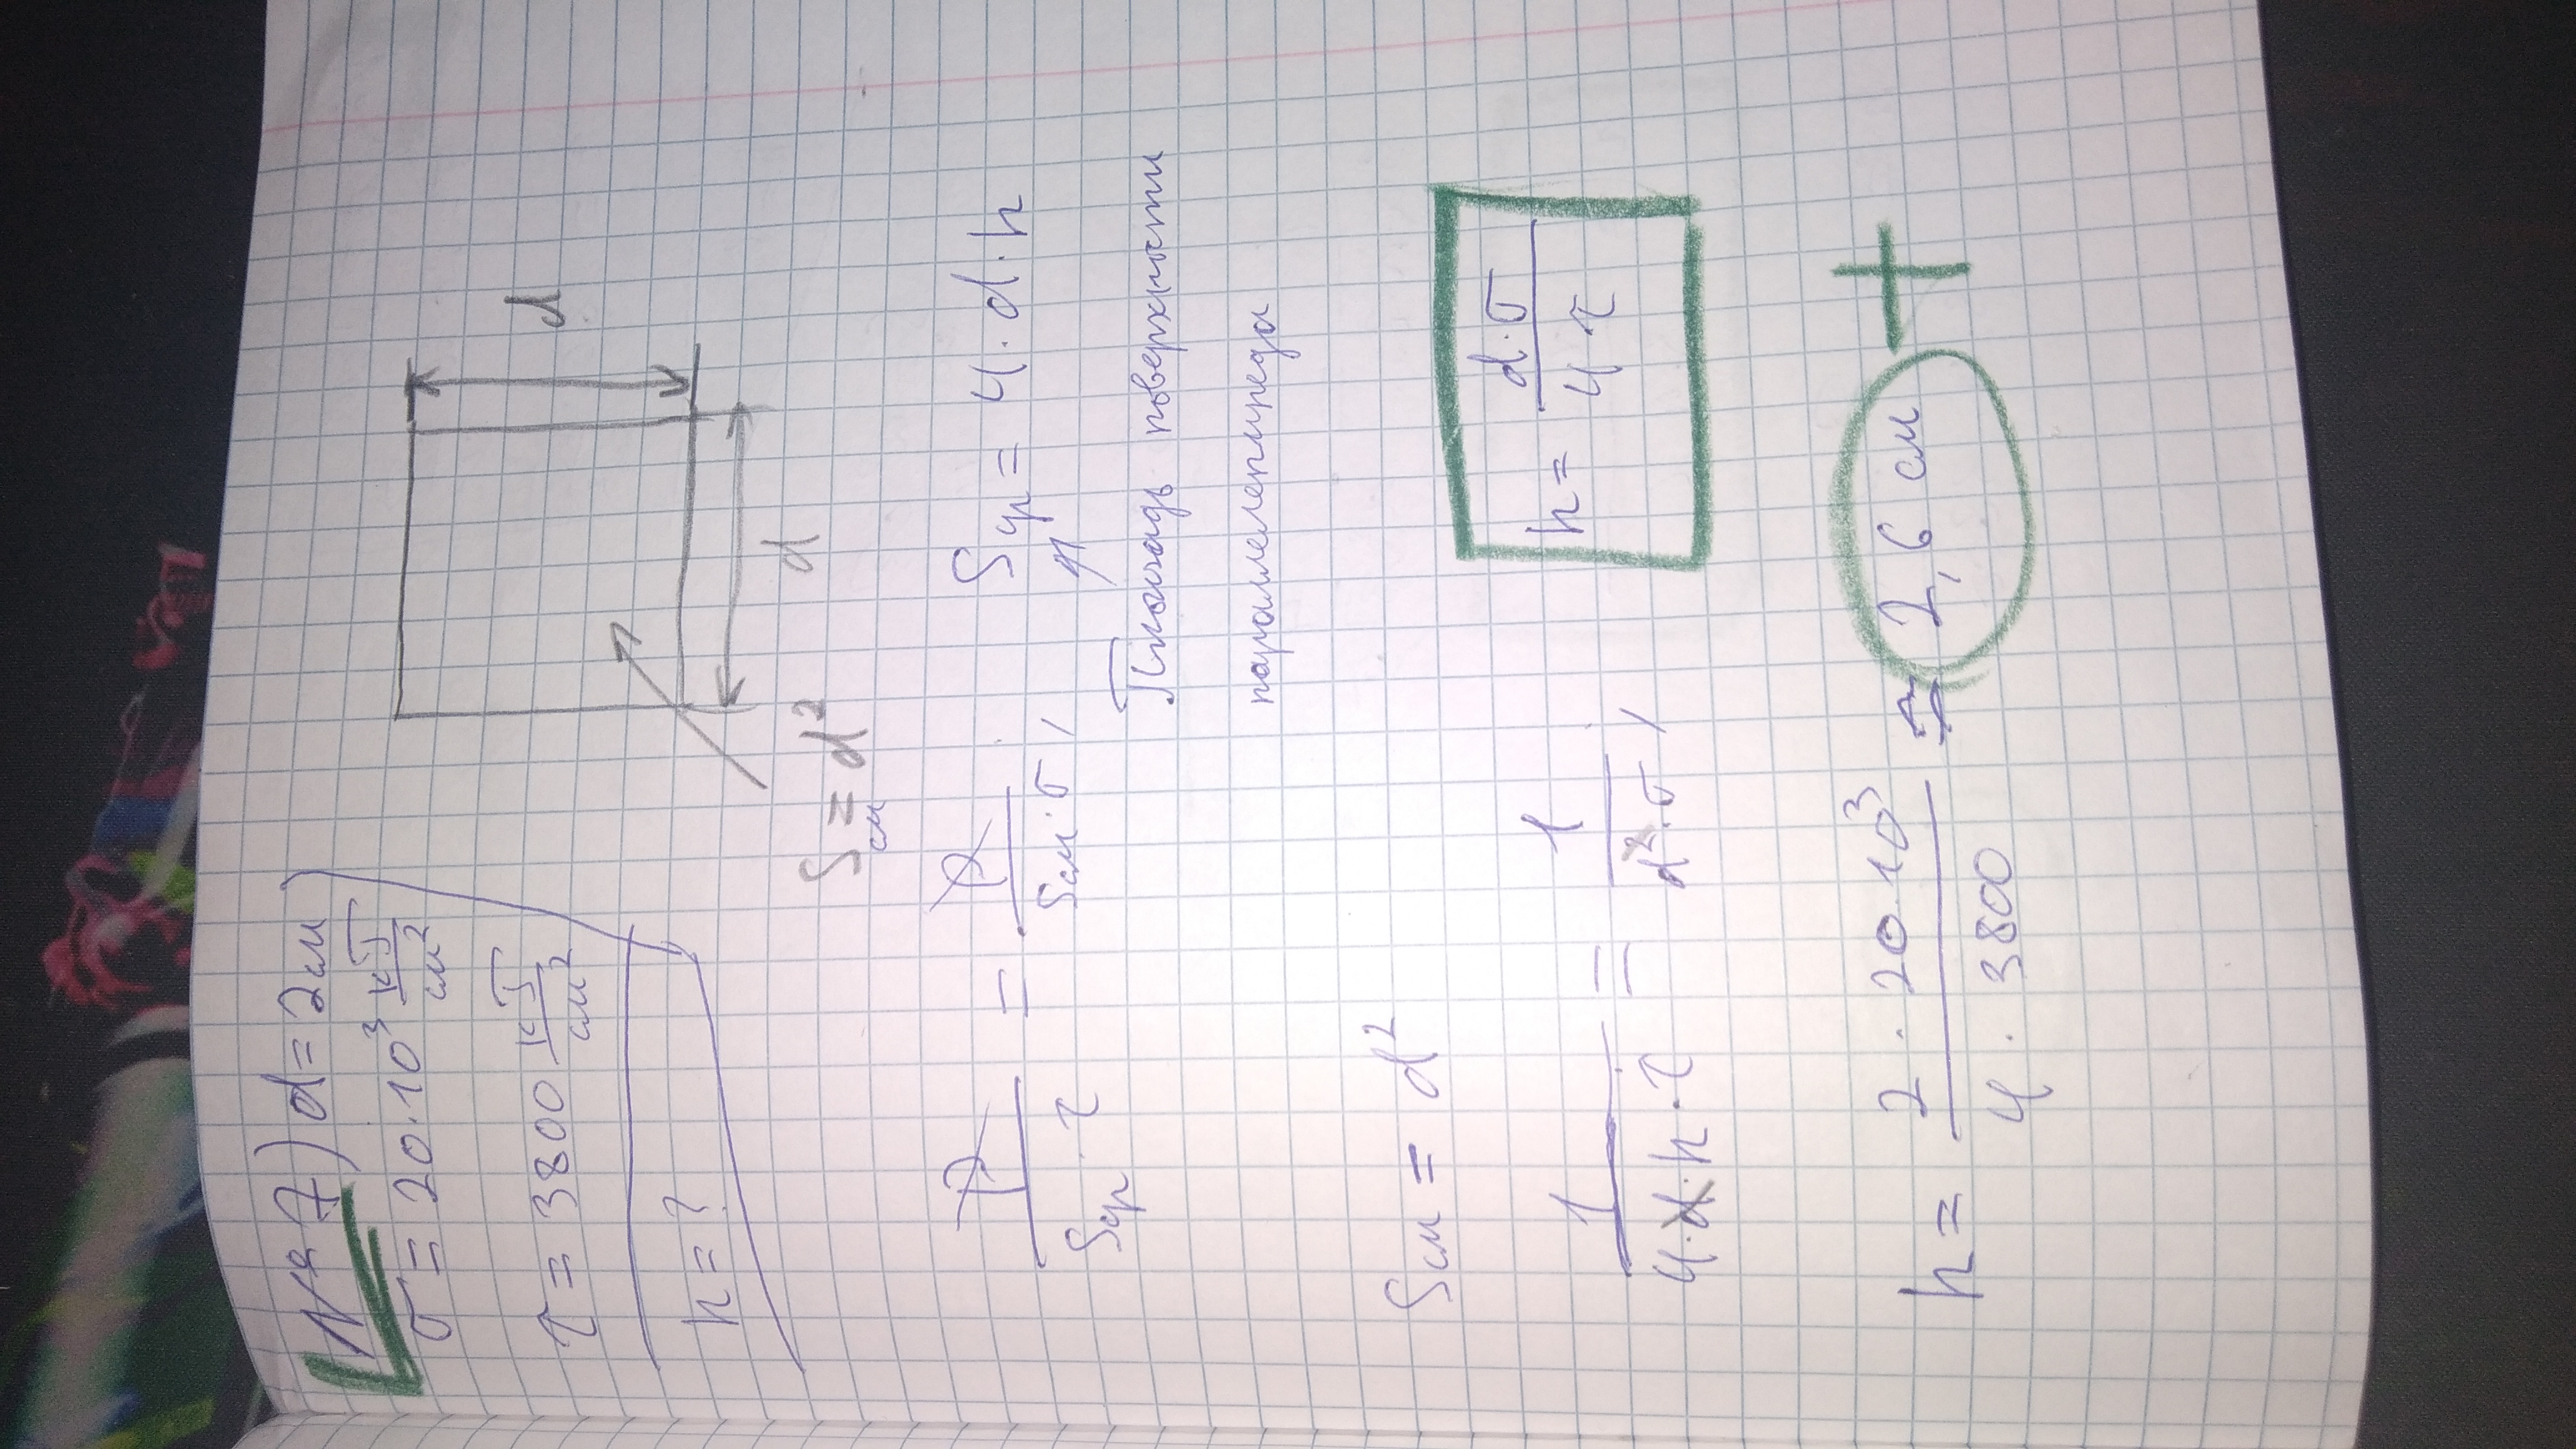 № 7) d = 2 см
σ = 20·10³ кГ/см²
τ = 3800 кГ/см²
h = ?
d
d
Sсм = d²
P/(Sср · τ) = P/(Sсм · σ) ; Sср = 4·d·h
Площадь поверхности
параллелепипеда
Sсм = d²
1/(4·d·h·τ) = 1/(d²·σ) ; h = d·σ/4τ
h = 2 · 20·10³/4 · 3800 ≈ 2,6 см +